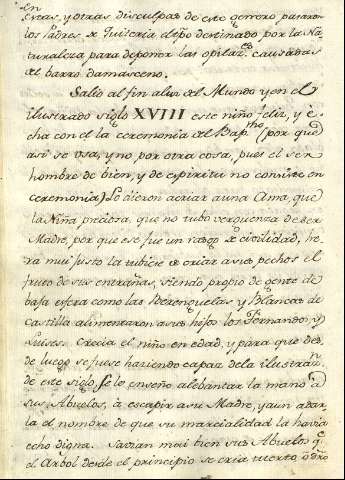 en
creas, y otras disculpas de este genero, pasaron
los Padres de Quiteria el tpo destinado por la Na-
turaleza para deponer las opilacs causadas
del barro damasceno.
Salio al fin a luz del Mundo y en el
ilustrado siglo XVIII este niño feliz, y è-
cha con el la ceremonia del Baptmo (por que
asi se usa, y no por otra cosa, pues el ser
hombre de bien, y de espiritu no consiste en
ceremonia) Se dieron a criar a una Ama, que
la Niña preciosa, que no tubo verguenza de ser
Madre, por que ese fue un rasgo de civilidad,
ra mui justo la tubiese de criar a sus pechos el
fruto de sus entrañas, siendo propio de gente de
baja esfera como las Berenguelas y Blancas de
Castilla alimentaron a sus hijos los Fernandos, y
Luises. Crecia el niño en edad, y para que des-
de luego se fuese haciendo capaz de la ilustraon
de este siglo, se le enseño a lebantar la mano à
sus Abuelos, à escupir a su Madre, y aun a dar-
la el nombre de que su marcialidad la havia
echo digna. Savian mui bien sus Abuelos qe
el Arbol desde el principio se cria tuerto, ò dro